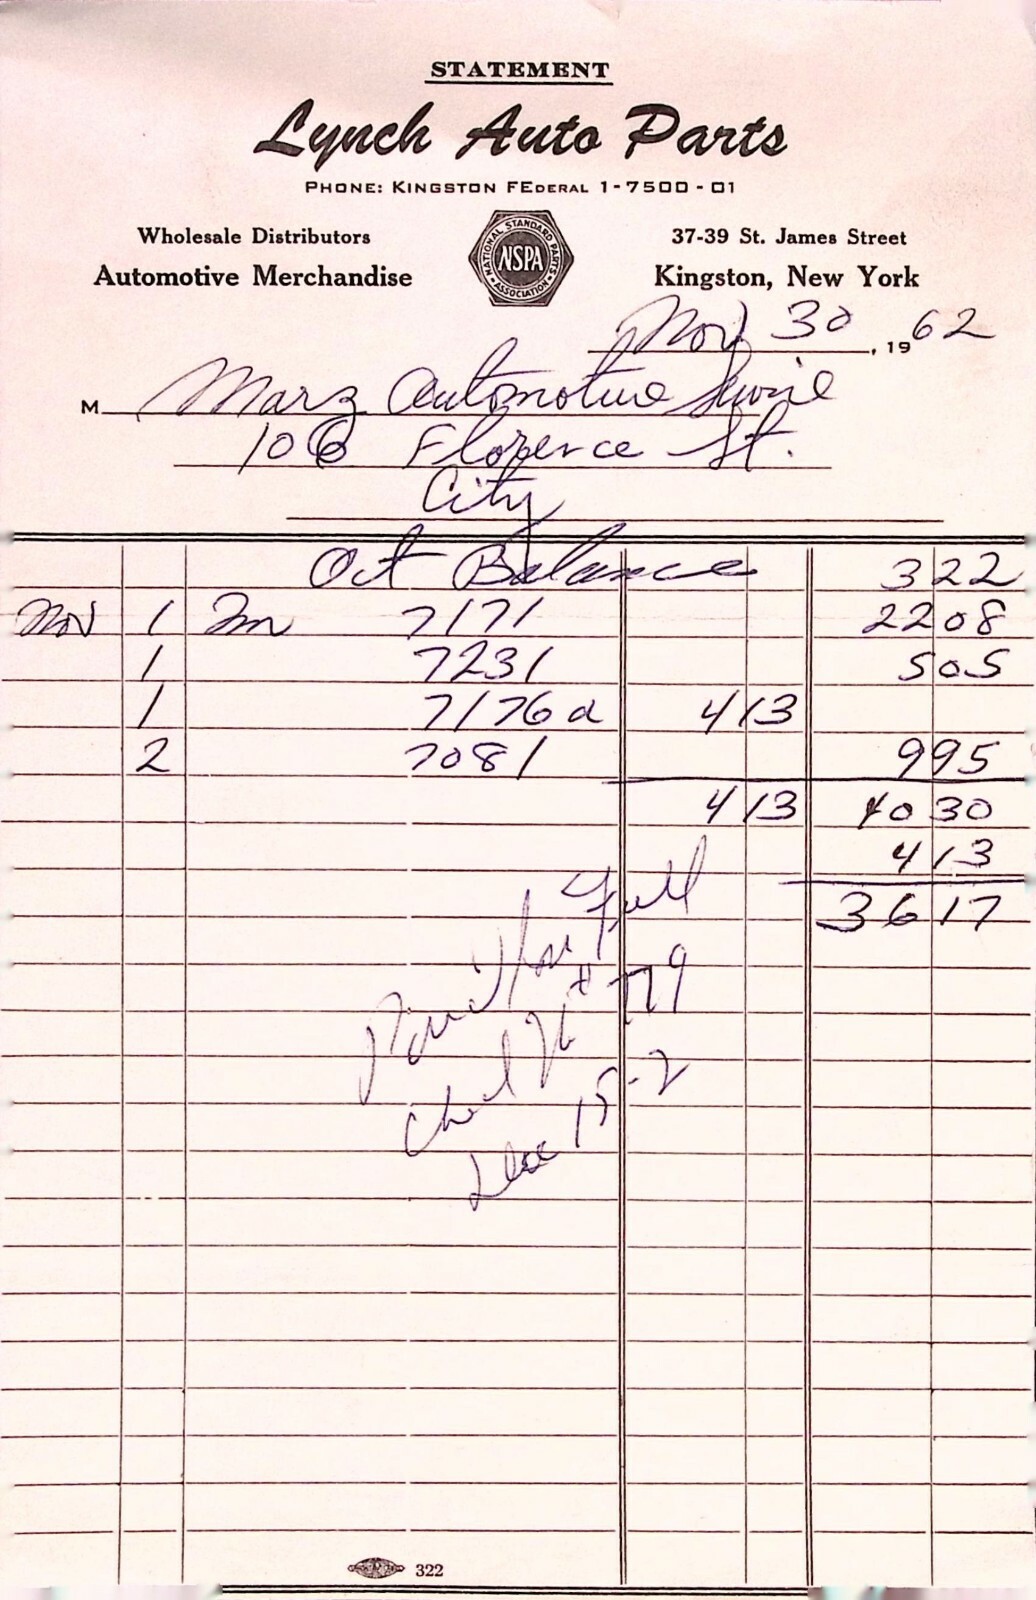 STATEMENT
Lynch Auto Parts
PHONE: KINGSTON FEDERAL 1-7500-01
Wholesale Distributors
Automotive Merchandise
NATIONAL STANDARD PARTS ASSOCIATION
NSPA
37-39 St. James Street
Kingston, New York
Nov 30, 1962
M Marz Automotive Service
106 Florence St.
City
Oct Balance 3 22
Nov 1 Inv 7171 22 08
1 7231 5 05
1 7176 a 4 13
2 7081 9 95
4 13 40 30
4 13
36 17
Paid in Full
Check No # 179
Dec 15-2
322